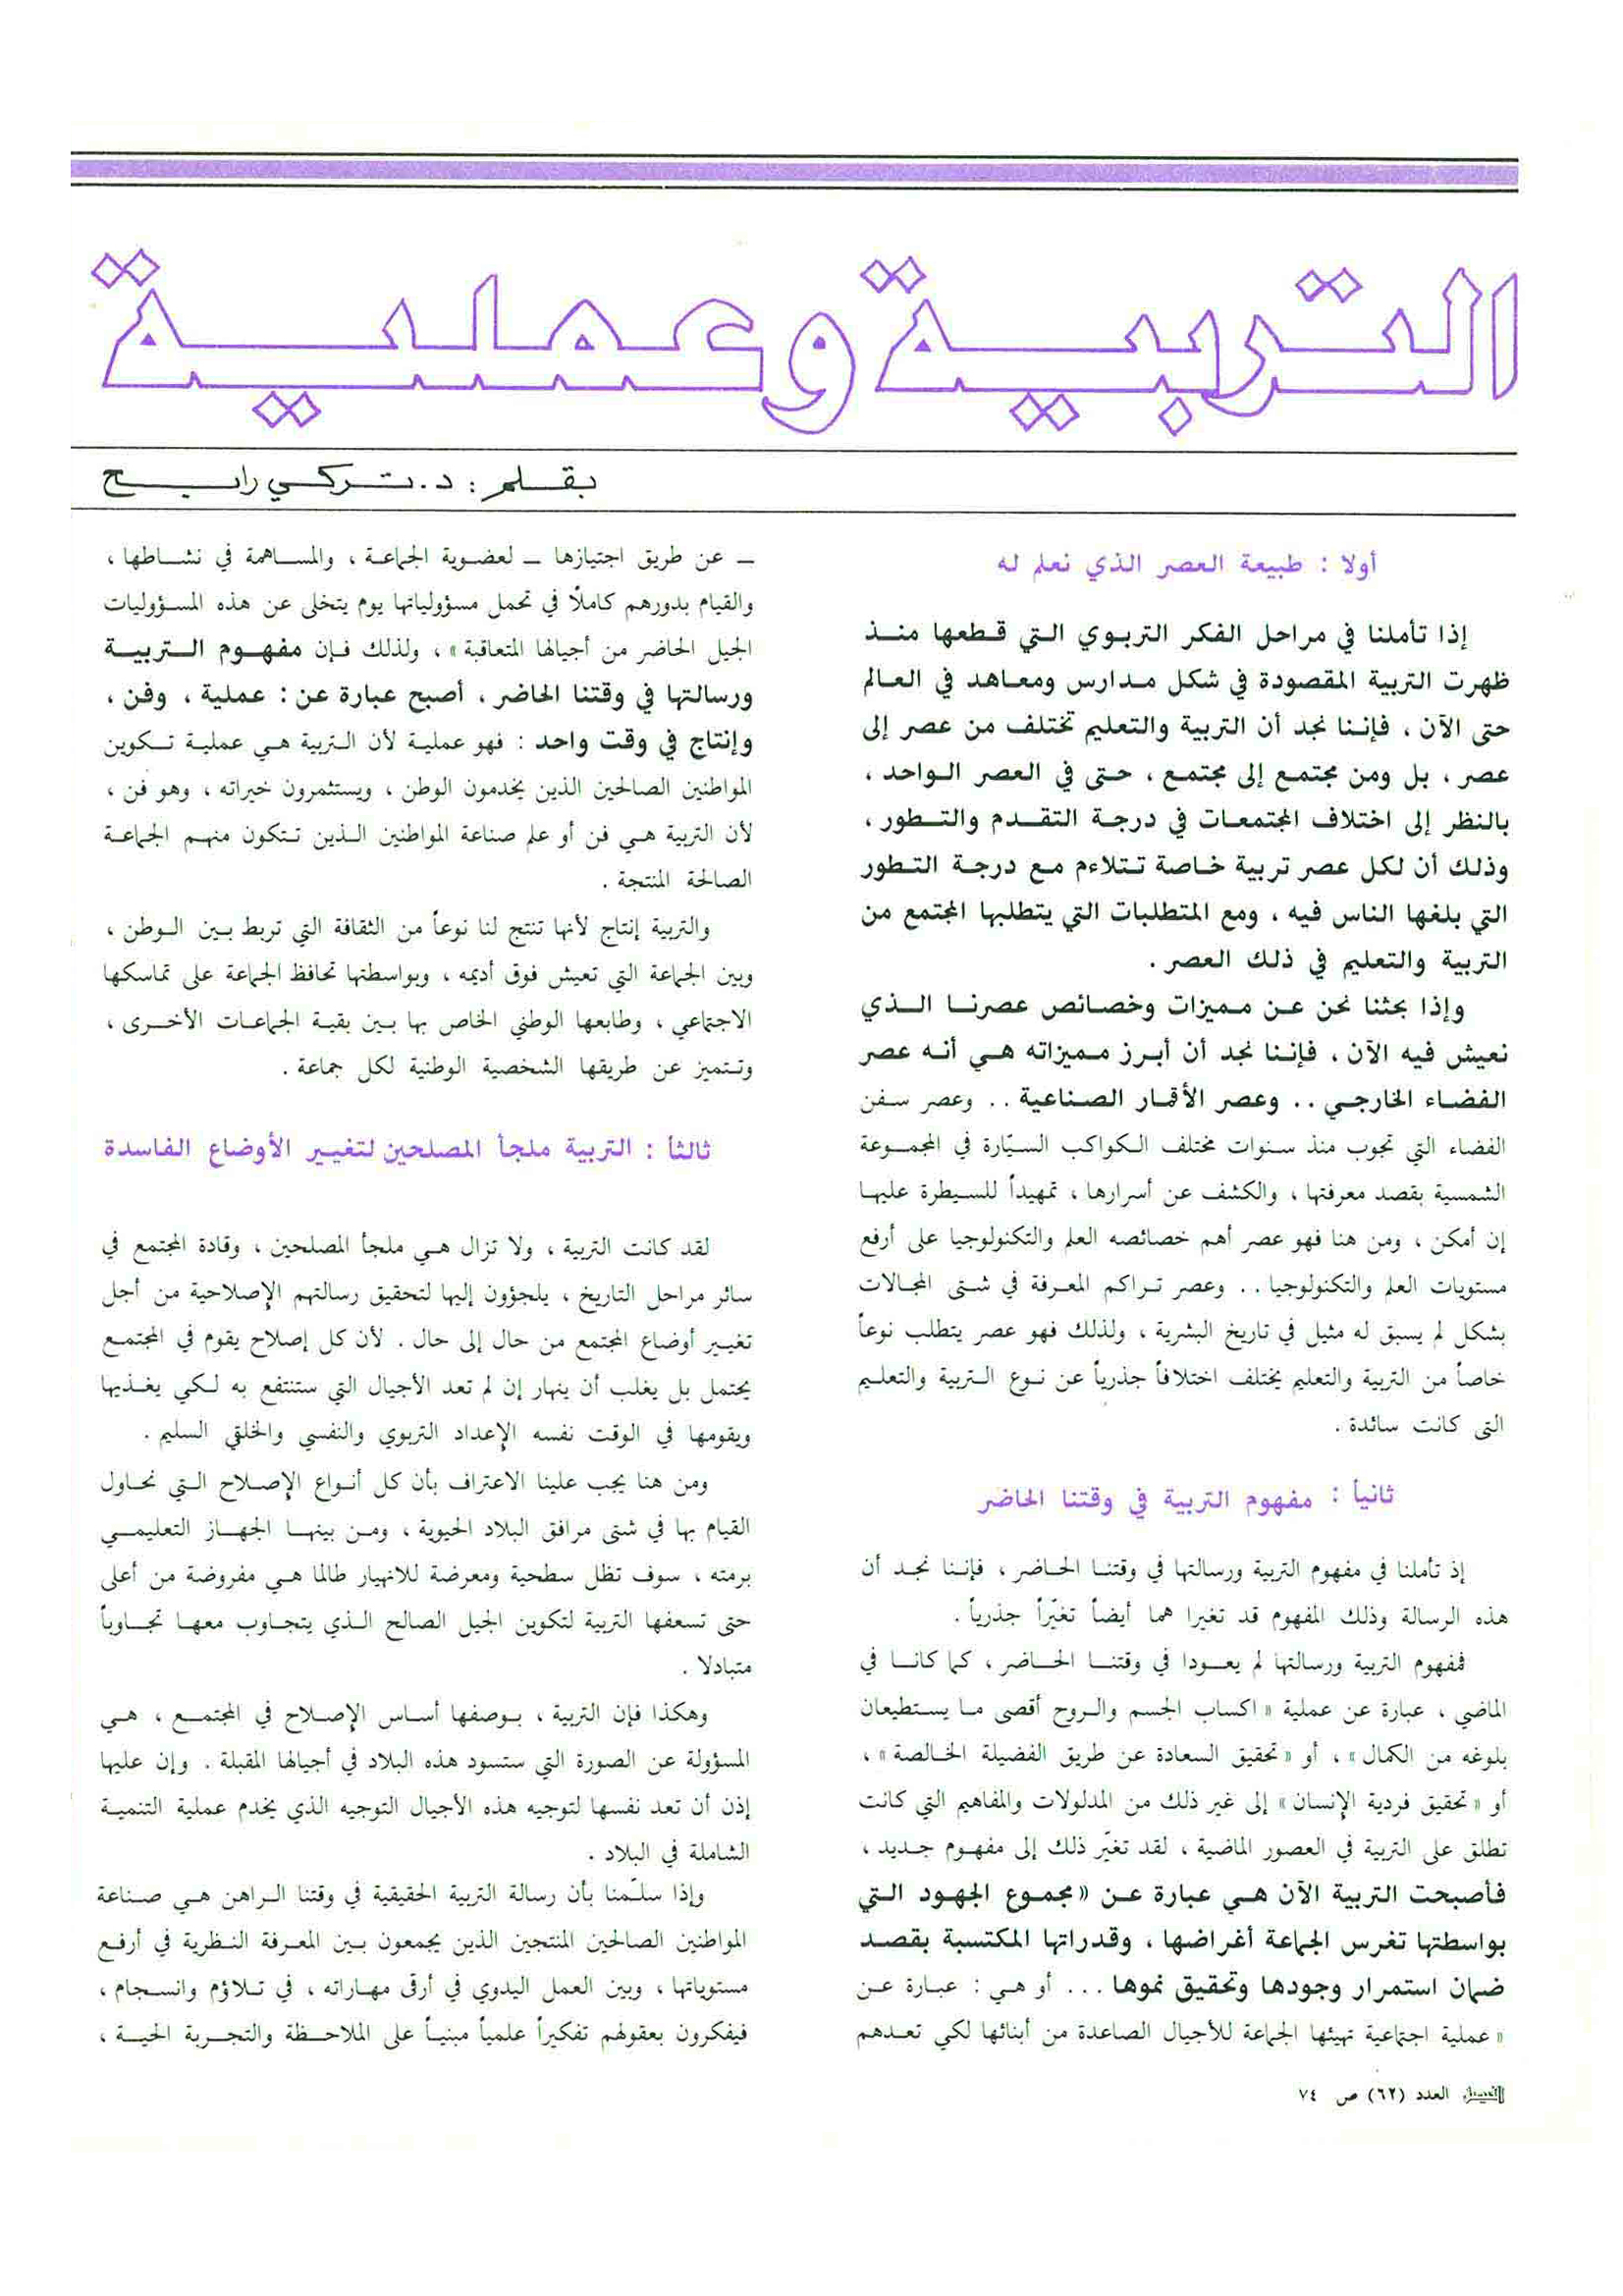 التربية وعملية
بقلم : د. تركي رابح
أولا : طبيعة العصر الذي نعلم له
إذا تأملنا في مراحل الفكر التربوي التي قطعها منذ
ظهرت التربية المقصودة في شكل مدارس ومعاهد في العالم
حتى الآن ، فإننا نجد أن التربية والتعليم تختلف من عصر إلى
عصر ، بل ومن مجتمع إلى مجتمع ، حتى في العصر الواحد ،
بالنظر إلى اختلاف المجتمعات في درجة التقدم والتطور ،
وذلك أن لكل عصر تربية خاصة تتلاءم مع درجة التطور
التي بلغها الناس فيه ، ومع المتطلبات التي يتطلبها المجتمع من
التربية والتعليم في ذلك العصر .
وإذا بحثنا نحن عن مميزات وخصائص عصرنا الذي
نعيش فيه الآن ، فإننا نجد أن أبرز مميزاته هي أنه عصر
الفضاء الخارجي .. وعصر الأقمار الصناعية .. وعصر سفن
الفضاء التي تجوب منذ سنوات مختلف الكواكب السيّارة في المجموعة
الشمسية بقصد معرفتها ، والكشف عن أسرارها ، تمهيداً للسيطرة عليها
إن أمكن ، ومن هنا فهو عصر أهم خصائصه العلم والتكنولوجيا على أرفع
مستويات العلم والتكنولوجيا .. وعصر تراكم المعرفة في شتى المجالات
بشكل لم يسبق له مثيل في تاريخ البشرية ، ولذلك فهو عصر يتطلب نوعاً
خاصاً من التربية والتعليم يختلف اختلافاً جذرياً عن نوع التربية والتعليم
التى كانت سائدة .
ثانياً : مفهوم التربية في وقتنا الحاضر
إذ تأملنا في مفهوم التربية ورسالتها في وقتنا الحاضر ، فإننا نجد أن
هذه الرسالة وذلك المفهوم قد تغيرا هما أيضاً تغيّراً جذرياً .
فمفهوم التربية ورسالتها لم يعودا في وقتنا الحاضر ، كما كانا في
الماضي ، عبارة عن عملية « اكساب الجسم والروح أقصى ما يستطيعان
بلوغه من الكمال » ، أو « تحقيق السعادة عن طريق الفضيلة الخالصة » ،
أو « تحقيق فردية الإنسان » إلى غير ذلك من المدلولات والمفاهيم التي كانت
تطلق على التربية في العصور الماضية ، لقد تغيّر ذلك إلى مفهوم جديد ،
فأصبحت التربية الآن هي عبارة عن « مجموع الجهود التي
بواسطتها تغرس الجماعة أغراضها ، وقدراتها المكتسبة بقصد
ضمان استمرار وجودها وتحقيق نموها ... أو هي : عبارة عن
« عملية اجتماعية تهيئها الجماعة للأجيال الصاعدة من أبنائها لكي تعدهم
ـ عن طريق اجتيازها ـ لعضوية الجماعة ، والمساهمة في نشاطها ،
والقيام بدورهم كاملًا في تحمل مسؤولياتها يوم يتخلى عن هذه المسؤوليات
الجيل الحاضر من أجيالها المتعاقبة » ، ولذلك فإن مفهوم التربية
ورسالتها في وقتنا الحاضر ، أصبح عبارة عن : عملية ، وفن ،
وإنتاج في وقت واحد : فهو عملية لأن التربية هي عملية تكوين
المواطنين الصالحين الذين يخدمون الوطن ، ويستثمرون خيراته ، وهو فن ،
لأن التربية هي فن أو علم صناعة المواطنين الذين تتكون منهم الجماعة
الصالحة المنتجة .
والتربية إنتاج لأنها تنتج لنا نوعاً من الثقافة التي تربط بين الوطن ،
وبين الجماعة التي تعيش فوق أديمه ، وبواسطتها تحافظ الجماعة على تماسكها
الاجتماعي ، وطابعها الوطني الخاص بها بين بقية الجماعات الأخرى ،
وتتميز عن طريقها الشخصية الوطنية لكل جماعة .
ثالثاً : التربية ملجأ المصلحين لتغيير الأوضاع الفاسدة
لقد كانت التربية ، ولا تزال هي ملجأ المصلحين ، وقادة المجتمع في
سائر مراحل التاريخ ، يلجؤون إليها لتحقيق رسالتهم الإصلاحية من أجل
تغيير أوضاع المجتمع من حال إلى حال . لأن كل إصلاح يقوم في المجتمع
يحتمل بل يغلب أن ينهار إن لم تعد الأجيال التي ستنتفع به لكي يغذيها
ويقومها في الوقت نفسه الإعداد التربوي والنفسي والخلقي السليم .
ومن هنا يجب علينا الاعتراف بأن كل أنواع الإصلاح التي نحاول
القيام بها في شتى مرافق البلاد الحيوية ، ومن بينها الجهاز التعليمي
برمته ، سوف تظل سطحية ومعرضة للانهيار طالما هي مفروضة من أعلى
حتى تسعفها التربية لتكوين الجيل الصالح الذي يتجاوب معها تجاوباً
متبادلا .
وهكذا فإن التربية ، بوصفها أساس الإصلاح في المجتمع ، هي
المسؤولة عن الصورة التي ستسود هذه البلاد في أجيالها المقبلة . وإن عليها
إذن أن تعد نفسها لتوجيه هذه الأجيال التوجيه الذي يخدم عملية التنمية
الشاملة في البلاد .
وإذا سلّمنا بأن رسالة التربية الحقيقية في وقتنا الراهن هي صناعة
المواطنين الصالحين المنتجين الذين يجمعون بين المعرفة النظرية في أرفع
مستوياتها ، وبين العمل اليدوي في أرقى مهاراته ، في تلاؤم وانسجام ،
فيفكرون بعقولهم تفكيراً علمياً مبنياً على الملاحظة والتجربة الحية ،
الفيصل العدد (٦٢) ص ٧٤